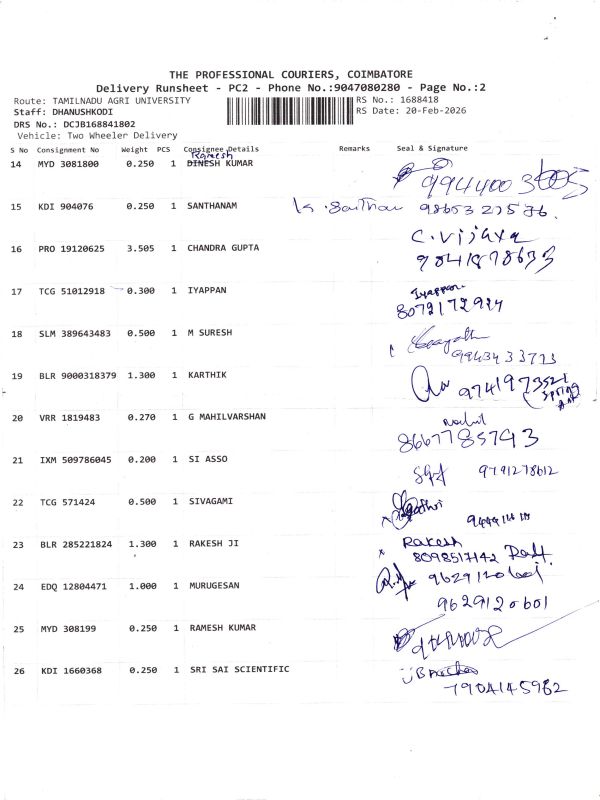 THE PROFESSIONAL COURIERS, COIMBATORE
Delivery Runsheet - PC2 - Phone No.:9047080280 - Page No.:2
Route: TAMILNADU AGRI UNIVERSITY RS No.: 1688418
Staff: DHANUSHKODI RS Date: 20-Feb-2026
DRS No.: DCJB168841802
Vehicle: Two Wheeler Delivery
S No Consignment No Weight PCS Consignee Details Remarks Seal & Signature
Ramesh
14 MYD 3081800 0.250 1 DINESH KUMAR
15 KDI 904076 0.250 1 SANTHANAM
C. Vijaya
16 PRO 19120625 3.505 1 CHANDRA GUPTA 9041878633
Iyappan
17 TCG 51012918 0.300 1 IYAPPAN 8072172924
18 SLM 389643483 0.500 1 M SURESH
9943433773
19 BLR 9000318379 1.300 1 KARTHIK 9741973521
20 VRR 1819483 0.270 1 G MAHILVARSHAN
8667785793
21 IXM 509786045 0.200 1 SI ASSO 9791278612
22 TCG 571424 0.500 1 SIVAGAMI
23 BLR 285221824 1.300 1 RAKESH JI Rakesh
8098517142
24 EDQ 12804471 1.000 1 MURUGESAN
9629120601
25 MYD 308199 0.250 1 RAMESH KUMAR
26 KDI 1660368 0.250 1 SRI SAI SCIENTIFIC
7904145962